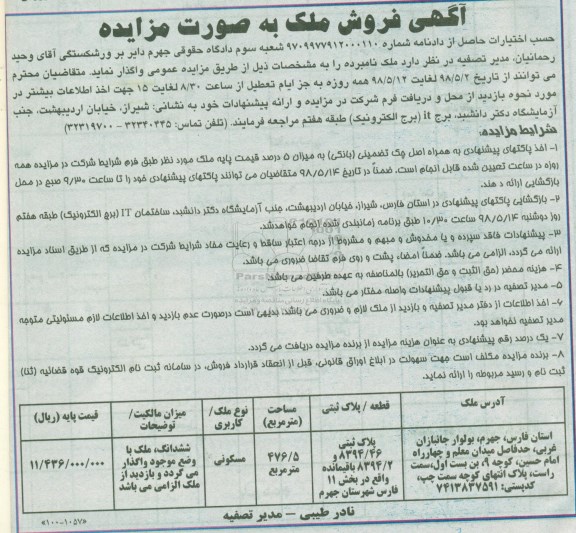 آگهی فروش ملک به صورت مزایده
حسب اختیارات حاصل از دادنامه شماره ۹۷۰۹۹۷۷۹۱۲۰۰۰۱۱۰ شعبه سوم دادگاه حقوقی جهرم دایر بر ورشکستگی آقای وحید
رحمانیان، مدیر تصفیه در نظر دارد ملک نامبرده را به مشخصات ذیل از طریق مزایده عمومی واگذار نماید. متقاضیان محترم
می توانند از تاریخ ۹۸/۵/۲ لغایت ۹۸/۵/۱۲ همه روزه به جز ایام تعطیل از ساعت ۸/۳۰ لغایت ۱۵ جهت اخذ اطلاعات بیشتر در
مورد نحوه بازدید از محل و دریافت فرم شرکت در مزایده و ارائه پیشنهادات خود به نشانی: شیراز، خیابان اردیبهشت، جنب
آزمایشگاه دکتر دانشبد، برج it (برج الکترونیک) طبقه هفتم مراجعه فرمایند. (تلفن تماس: ۳۲۳۳۰۴۴۵ – ۳۲۳۱۹۷۰۰)
شرایط مزایده:
۱- اخذ پاکتهای پیشنهادی به همراه اصل چک تضمینی (بانکی) به میزان ۵ درصد قیمت پایه ملک مورد نظر طبق فرم شرایط شرکت در مزایده همه
روزه در ساعت تعیین شده قابل انجام است. ضمناً در تاریخ ۹۸/۵/۱۴ متقاضیان می توانند پاکتهای پیشنهادی خود را تا ساعت ۹/۳۰ صبح در محل
بازگشایی ارائه دهند.
۲- بازگشایی پاکتهای پیشنهادی در استان فارس، شیراز، خیابان اردیبهشت، جنب آزمایشگاه دکتر دانشبد، ساختمان IT (برج الکترونیک) طبقه هفتم
روز دوشنبه ۹۸/۵/۱۴ ساعت ۱۰/۳۰ طبق برنامه زمانبندی شده انجام خواهدشد.
۳- پیشنهادات فاقد سپرده و یا مخدوش و مبهم و مشروط از درجه اعتبار ساقط و رعایت مفاد شرایط شرکت در مزایده که از طریق اسناد مزایده
ارائه می گردد، الزامی می باشد. ضمناً امضاء پشت و روی فرم تقاضا ضروری می باشد.
۴- هزینه محضر (حق الثبت و حق التحریر) بالمناصفه به عهده طرفین می باشد.
۵- مدیر تصفیه در رد یا قبول پیشنهادات واصله مختار می باشد.
۶- اخذ اطلاعات از دفتر مدیر تصفیه و بازدید از ملک لازم و ضروری می باشد. بدیهی است درصورت عدم بازدید و اخذ اطلاعات لازم مسئولیتی متوجه
مدیر تصفیه نخواهد بود.
۷- یک درصد رقم پیشنهادی به عنوان هزینه مزایده از برنده مزایده دریافت می گردد.
۸- برنده مزایده مکلف است جهت سهولت در ابلاغ اوراق قانونی، قبل از انعقاد قرارداد فروش، در سامانه ثبت نام الکترونیک قوه قضائیه (ثنا)
ثبت نام و رسید مربوطه را ارائه نماید.
آدرس ملک | قطعه / پلاک ثبتی | مساحت (مترمربع) | نوع ملک / کاربری | میزان مالکیت/ توضیحات | قیمت پایه (ریال)
استان فارس، جهرم، بولوار جانبازان غربی، حدفاصل میدان معلم و چهارراه امام حسین، کوچه ۹، بن بست اول، سمت راست، پلاک انتهای کوچه سمت چپ، کدپستی: ۷۴۱۳۸۳۷۵۹۱ | پلاک ثبتی ۸۳۹۴/۴۶ و ۸۳۹۴/۲ باقیمانده واقع در بخش ۱۱ فارس شهرستان جهرم | ۴۷۶/۵ مترمربع | مسکونی | ششدانگ، ملک با وضع موجود واگذار می گردد و بازدید از ملک الزامی می باشد | ۱۱/۴۳۶/۰۰۰/۰۰۰
نادر طیبی – مدیر تصفیه
«۱۰۰-۱۰۵۷»